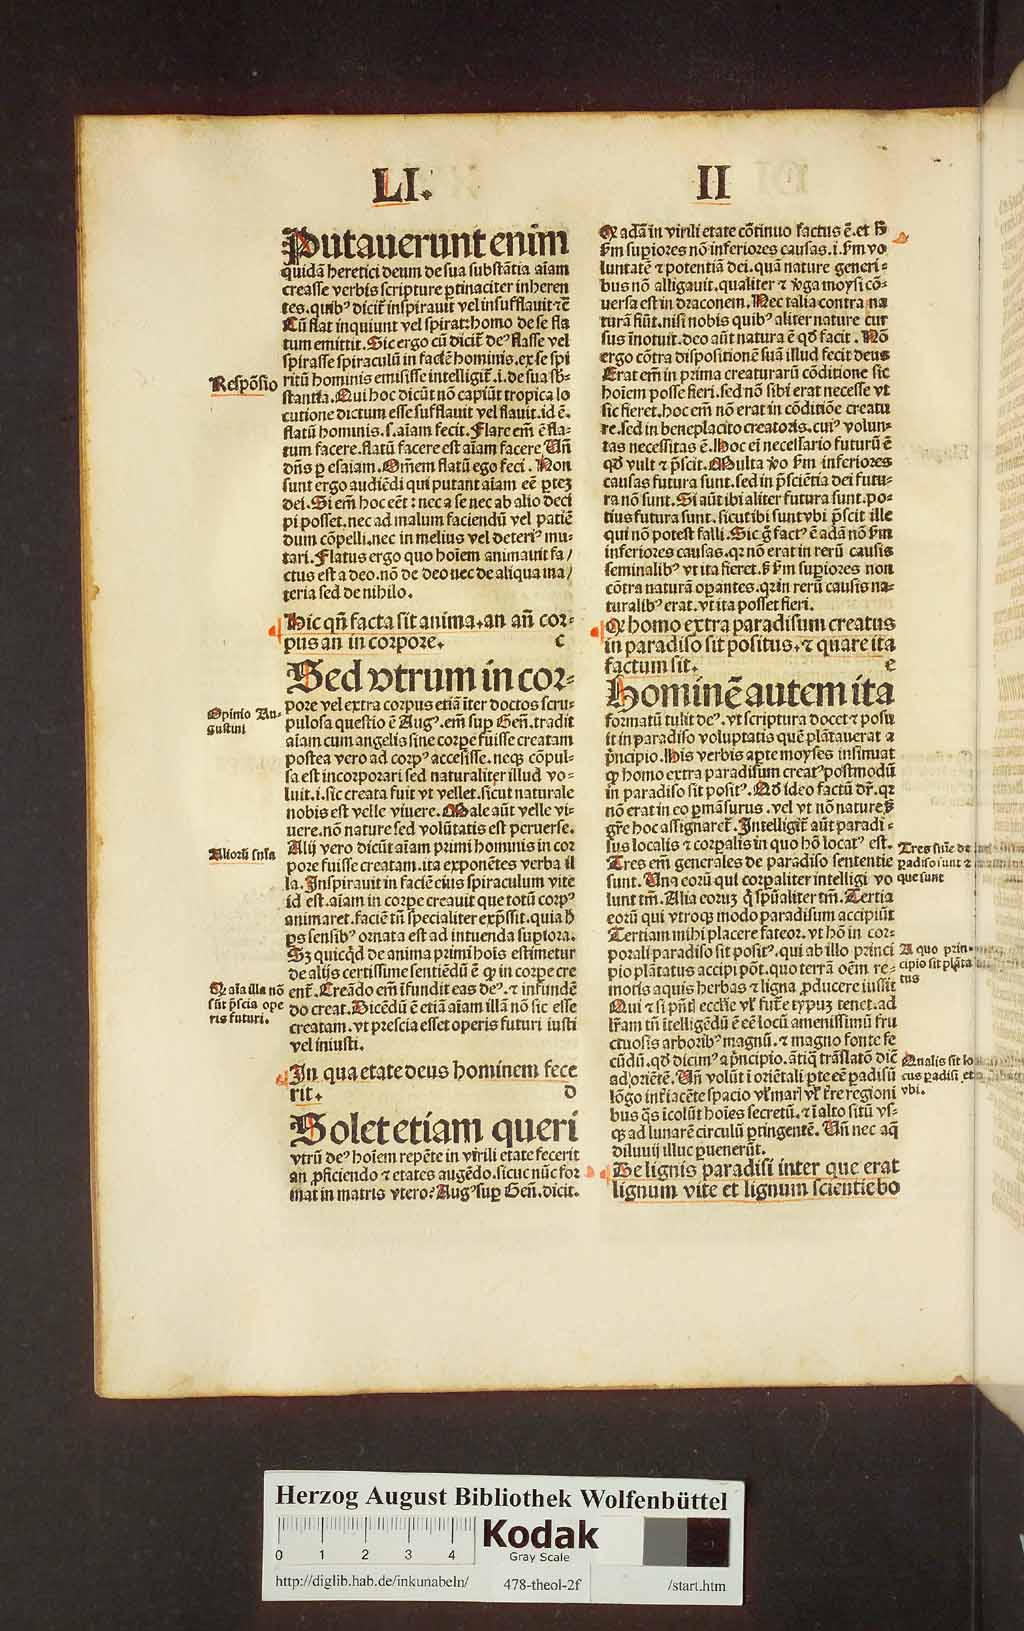 LI.
II
Putauerunt enim
quidā heretici deum de sua substātia aīam
creasse verbis scripture ꝑtinaciter inheren
tes. quibꝰ dicit̄ inspirauit vel insufflauit ⁊c̄
Cū flat inquiunt vel spirat: homo de se fla
tum emittit. Sic ergo cū dicit̄ deꝰ flasse vel
spirasse spiraculū in faciē hominis. ex se spi
Respōsio
ritū hominis emisisse intelligit̄. i. de sua sb̄-
stantia. Qui hoc dicūt nō capiūt tropica lo
cutione dictum esse sufflauit vel flauit. id ē.
flatū hominis. s. aīam fecit. Flare em̄ ē fla-
tum facere. flatū facere est aīam facere. Vn̄
dn̄s ꝑ esaiam. Om̄em flatū ego feci. Non
sunt ergo audiēdi qui putant aīam eē ꝑteꝫ
dei. Si em̄ hoc eēt: nec a se nec ab alio deci
pi posset. nec ad malum faciendū vel patiē
dum cōpelli. nec in melius vel deteriꝰ mu-
tari. Flatus ergo quo hoīem animauit fa/
ctus est a deo. nō de deo nec de aliqua ma/
teria sed de nihilo.
Hic qn̄ facta sit anima. an an̄ cor-
pus an in corpore. c
Sed vtrum in cor-
Opinio Au-
gustini
pore vel extra corpus etiā iter doctos scru-
pulosa questio ē Augꝰ. em̄ suꝑ Gen̄. tradit
aīam cum angelis sine corpe fuisse creatam
postea vero ad corpꝰ accessisse. neqꝫ cōpul-
sa est incorporari sed naturaliter illud vo-
luit. i. sic creata fuit vt vellet. sicut naturale
nobis est velle viuere. Male aūt velle vi-
uere. nō nature sed volūtatis est peruerse.
Aliorū sn̄ia
Alij vero dicūt aīam primi hominis in cor
pore fuisse creatam. ita exponētes verba il
la. Inspirauit in faciē eius spiraculum vite
id est. aīam in corpe creauit que totū corpꝰ
animaret. faciē tn̄ specialiter exp̄ssit. quia h̄
ꝑs sensibꝰ ornata est ad intuenda superiora.
Sꝫ quicqd de anima primi hoīs estimetur
de alijs certissime sentiēdū ē ꝙ in corpe cre
Q aīa illa nō
sūt p̄scia ope
ris futuri.
ent̄. Creādo em̄ ifundit eas deꝰ. ⁊ infundē
do creat. Dicēdū ē etiā aīam illā nō sic esse
creatam. vt prescia esset operis futuri iusti
vel iniusti.
In qua etate deus hominem fece
rit. D
Solet etiam queri
vtrū deꝰ hoīem repēte in virili etate fecerit
an ꝓficiendo ⁊ etates augēdo. sicuc nūc for
mat in matris vtero? Augꝰ suꝑ Gen̄. dicit.
Q adā in virili etate cōtinuo factus ē. et h̄
fm suꝑiores nō inferiores causas. i. fm vo
luntatē ⁊ potentiā dei. quā nature generi-
bus nō alligauit. qualiter ⁊ v̄ga moysi cō-
uersa est in draconem. Nec talia contra na
turā fiūt. nisi nobis quibꝰ aliter nature cur
sus inotuit. deo aūt natura ē qd̄ facit. Nō
ergo cōtra dispositionē suā illud fecit deus
Erat em̄ in prima creaturarū cōditione sic
hoīem posse fieri. sed nō sibi erat necesse vt
sic fieret. hoc em̄ nō erat in cōditiōe creatu
re. sed in beneplacito creatoris. cuiꝰ volun-
tas necessitas ē. Hoc ei necessario futurū ē
qd̄ vult ⁊ p̄scit. Multa v̄o fm inferiores
causas futura sunt. sed in p̄sciētia dei futu-
ra nō sunt. Si aūt ibi aliter futura sunt. po-
tius futura sunt. sicut ibi sunt vbi p̄scit ille
qui nō potest falli. Sic g̊ factꝰ ē adā nō fm
inferiores causas. qr nō erat in rerū causis
seminalibꝰ vt ita fieret. s̄ fm suꝑiores non
cōtra naturā oꝑantes. qr in rerū causis na-
turalibꝰ erat. vt ita posset fieri.
Q homo extra paradisum creatus
in paradiso sit positus. ⁊ quare ita
factum sit. e
Hominē autem ita
formatū tulit deꝰ. vt scriptura docet ⁊ posu
it in paradiso voluptatis quē plātauerat a
p̄ncipio. His verbis aꝑte moyses insinuat
ꝙ homo extra paradisum creatꝰ postmodū
in paradiso sit positꝰ. Qd̄ ideo factū dr̄. qr
nō erat in eo ꝑmāsurus. vel vt nō nature s̄
gr̄e hoc assignaret̄. Intelligit̄ aūt paradi-
sus localis ⁊ corꝑalis in quo hō locatꝰ est.
Tres sn̄ie de
padiso sunt ⁊
que sunt
Tres em̄ generales de paradiso sententie
sunt. Una eorū qui corꝑaliter intelligi vo
lunt tm̄. Alia eoruꝫ q̇ sp̄ualiter tm̄. Tertia
eorū qui vtroqꝫ modo paradisum accipiūt
Tertiam mihi placere fateor. vt hō in cor-
A quo prin-
cipio sit plāta
tus
porali paradiso sit positꝰ. qui ab illo princi
pio plātatus accipi pōt. quo terrā oēm re-
motis aquis herbas ⁊ ligna ꝓducere iussit
Qui ⁊ si p̄ntis eccl̄ie vl̓ fut̄e typuꝫ tenet. ad
lr̄am tn̄ itelligēdū ē eē locū amenissimū fru
ctuosis arboribꝰ magnū. ⁊ magno fonte fe
Qualis sit lo
cus padisi et
vbi.
cūdū. qd̄ dicimꝰ a p̄ncipio. ātiq̄ trāslatō dic̄
ad oriētē. Vn̄ volūt i oriētali ꝑte eē padisū
lōgo int̄iacēte spacio vl̓ mar̄ vl̓ t̄re regioni
bus qs̄ icolūt hoīes secretū. ⁊ i alto sitū vs-
qꝫ ad lunarē circulū ꝑtingentē. Vn̄ nec aq̄
diluuij illuc ꝑuenerūt.
De lignis paradisi inter que erat
lignum vite et lignum scientie bo
Herzog August Bibliothek Wolfenbüttel
0 1 2 3 4
Kodak
Gray Scale
http://diglib.hab.de/inkunabeln/ 478-theol-2f /start.htm